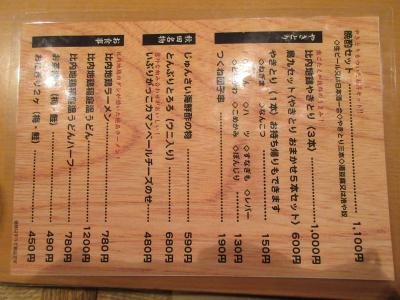 やきとり
晩酌セット 1,100円
比内地鶏やきとり(3本) 1,000円
鳥九セット(やきとり おまかせ5本セット) 600円
やきとり(1本) お持ち帰りもできます
◇ねぎま ◇なんこつ 150円
◇ハツ ◇すなぎも ◇レバー 190円
◇こめかみ ◇ぼんじり
つくね団子串 130円
秋田名物
じゅんさい海鮮酢の物 590円
とんぶりとろろ(ウニ入り) 680円
いぶりがっこカマンベールチーズのせ 480円
お食事
比内地鶏ラーメン 780円
比内地鶏稲庭うどん 1200円
比内地鶏稲庭うどんハーフ 780円
お茶漬け(梅・鮭) 490円
おにぎり2ヶ(梅・鮭) 450円